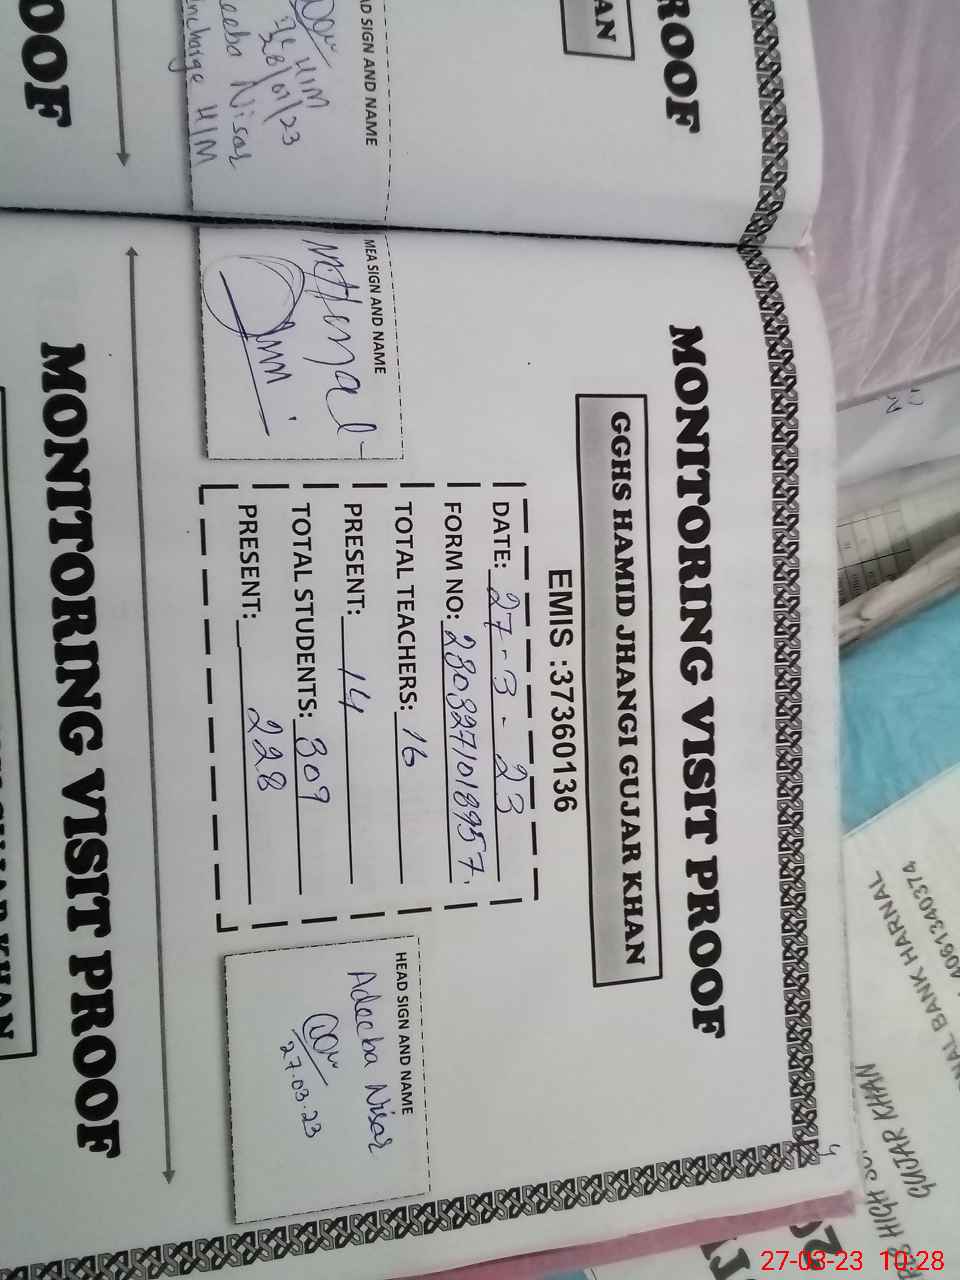 MONITORING VISIT PROOF
GGHS HAMID JHANGI GUJAR KHAN
EMIS :37360136
DATE: 27-3-23
FORM NO: 2803271018957.
TOTAL TEACHERS: 16
PRESENT: 14
TOTAL STUDENTS: 309
PRESENT: 228
MEA SIGN AND NAME
HEAD SIGN AND NAME
Adeeba Nisar
27.03.23
MONITORING VISIT PROOF
ROOF
AN
AD SIGN AND NAME
H/M
28/01/23
eeba Nisar
ncharge H/M
OOF
HAR KHAN
ONAL BANK HARNAL
4061340374
HIGH
GUJAR KHAN
27-03-23 10:28